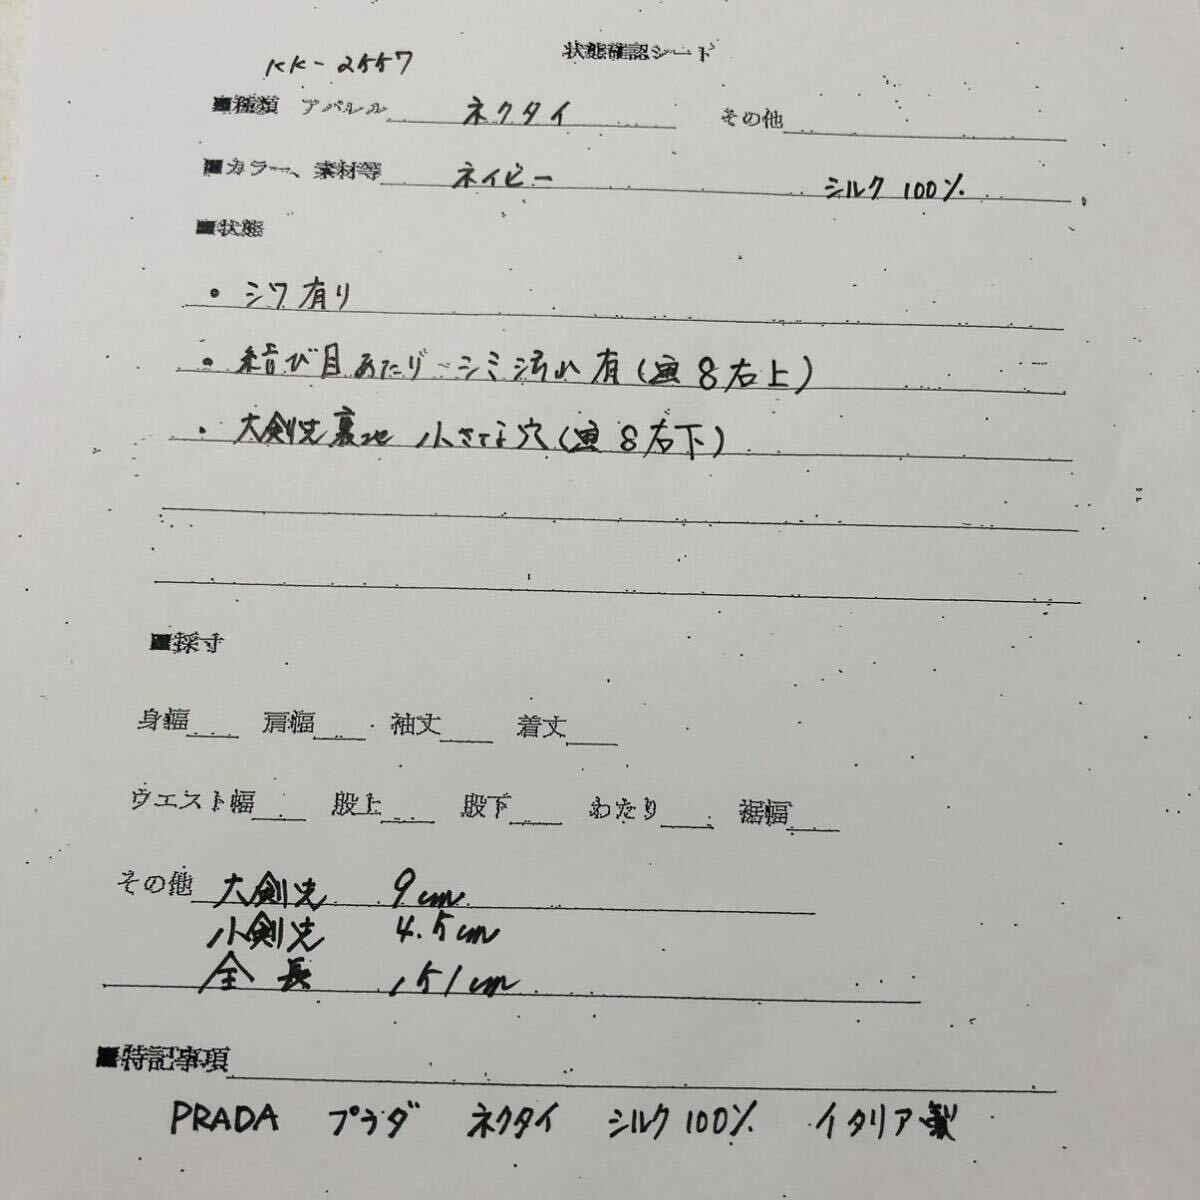 状態確認シート
KK-2557
■種類 アパレル ネクタイ その他
■カラー、素材等 ネイビー シルク 100%
■状態
• シワ有り
• 結び目あたり シミ汚れ有(画8右上)
• 大剣先裏地 小さな穴(画8右下)
■採寸
身幅 肩幅 袖丈 着丈
ウエスト幅 股上 股下 わたり 裾幅
その他 大剣先 9cm
小剣先 4.5cm
全長 151cm
■特記事項
PRADA プラダ ネクタイ シルク100% イタリア製